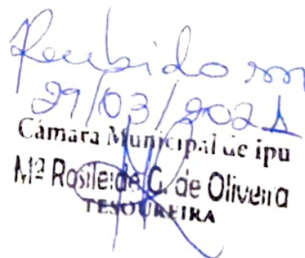 Recebido em
29/03/2021
Câmara Municipal de ipu
Mª Rosileide C. de Oliveira
TESOUREIRA